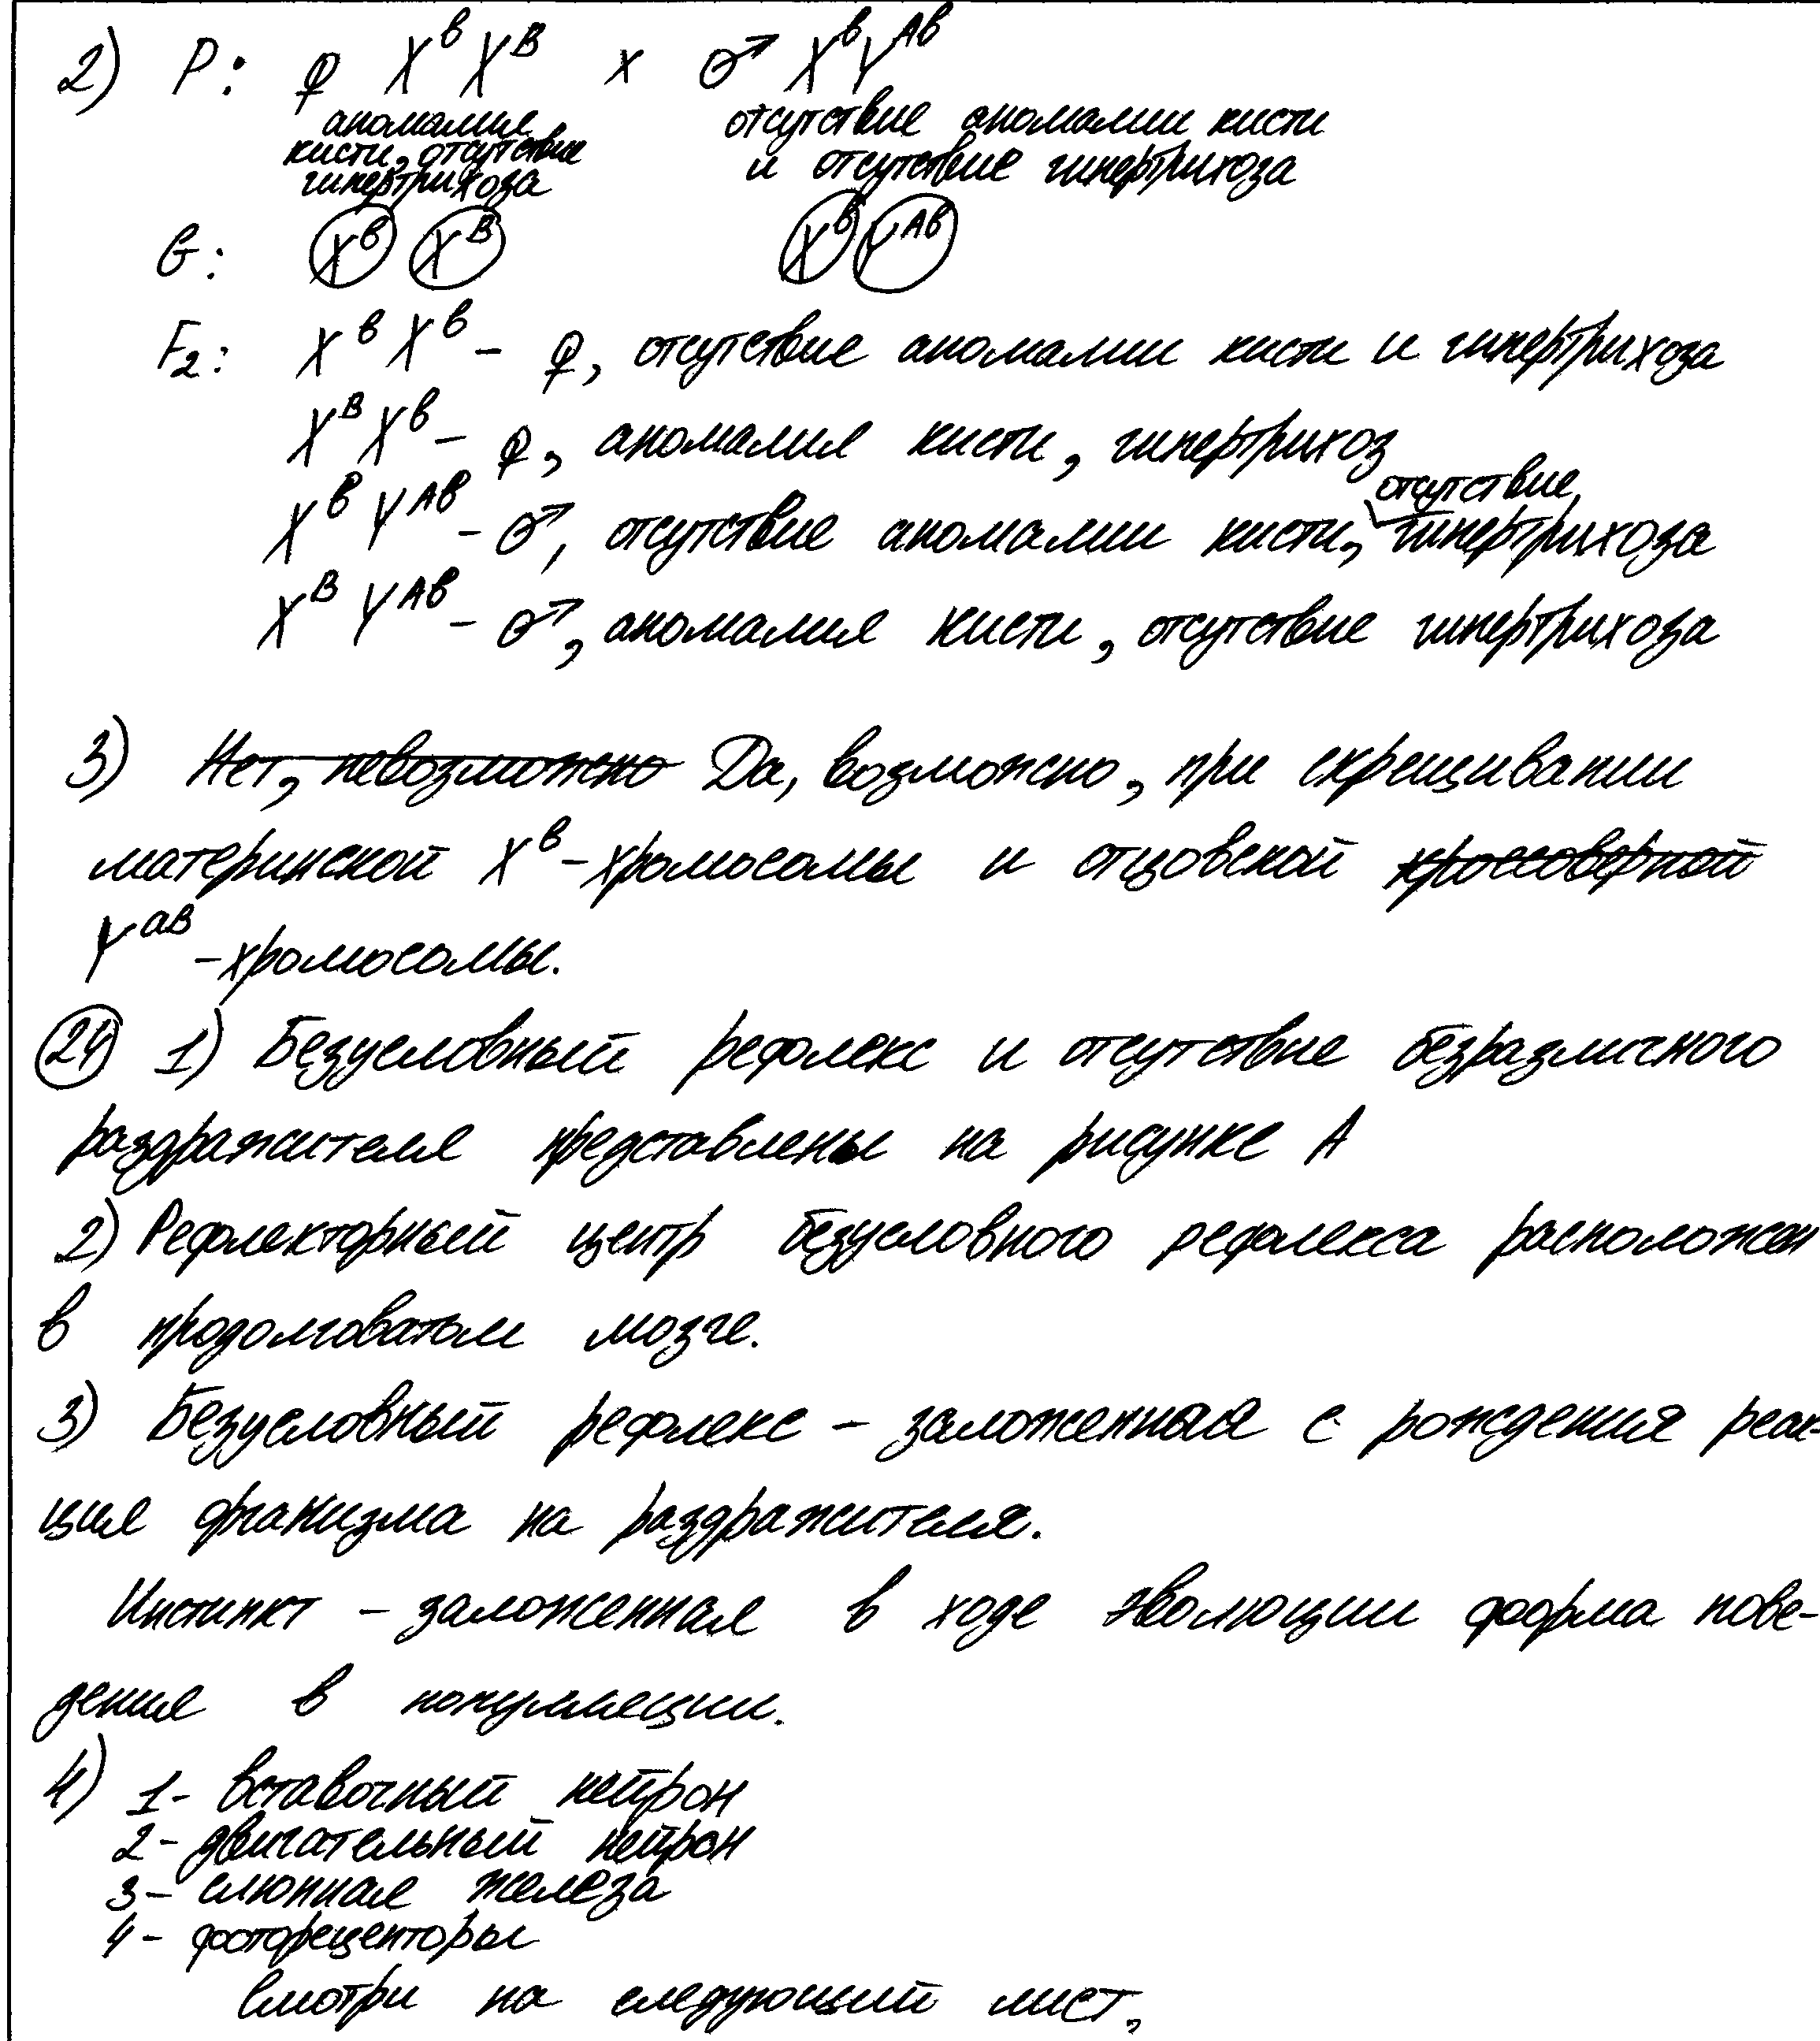 2) P: ♀ XᵇXᴮ x ♂ XᵇYᴬᵇ
аномалие отсутствие аномалии кисти
кисти, отсутствие и отсутствие гипертрихоза
гипертрихоза
G: Xᵇ Xᴮ Xᵇ Yᴬᵇ
F₂: XᵇXᵇ - ♀, отсутствие аномалии кисти и гипертрихоза
XᴮXᵇ - ♀, аномалия кисти, гипертрихоз
XᵇYᴬᵇ - ♂, отсутствие аномалии кисти, отсутствие гипертрихоза
XᴮYᴬᵇ - ♂, аномалия кисти, отсутствие гипертрихоза
3) Нет, невозможно Да, возможно, при скрещивании
материнской Xᵇ-хромосомы и отцовской кроссоверной
Yᵃᴮ-хромосомы.
24 1) Безусловный рефлекс и отсутствие безразличного
раздражителя представлены на рисунке А
2) Рефлекторный центр безусловного рефлекса расположен
в продолговатом мозге.
3) Безусловный рефлекс - заложенная с рождения реак-
ция организма на раздражителя.
Инстинкт - заложенная в ходе эволюции форма пове-
дения в популяции.
4) 1- вставочный нейрон
2- двигательный нейрон
3- слюнная железа
4- фоторецепторы
Смотри на следующий лист,